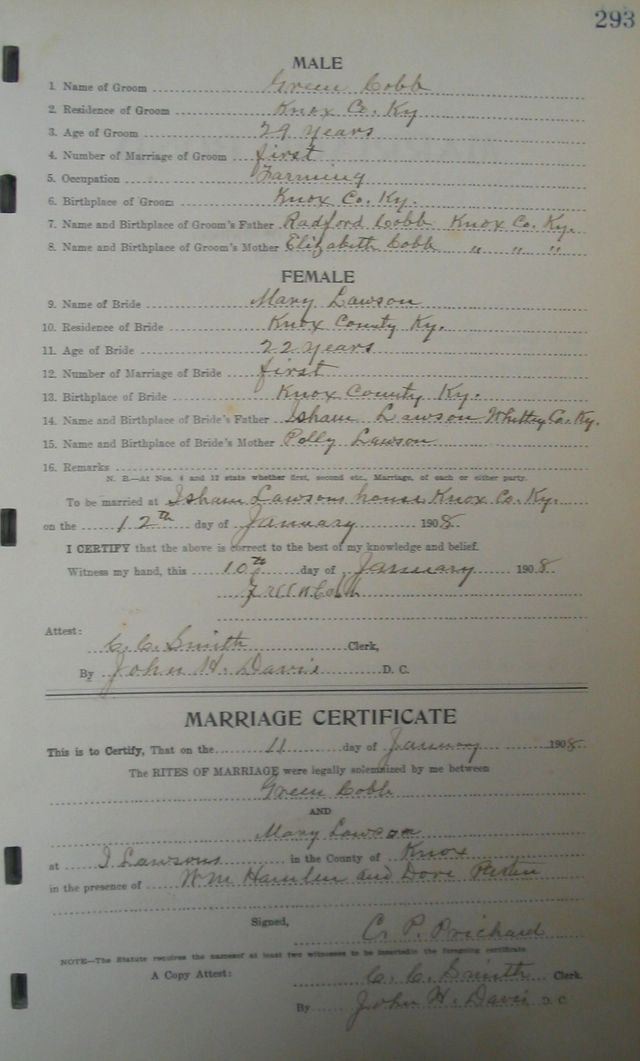 293
MALE
1. Name of Groom Green Cobb
2. Residence of Groom Knox Co. Ky
3. Age of Groom 29 years
4. Number of Marriage of Groom first
5. Occupation Farming
6. Birthplace of Groom Knox Co. Ky.
7. Name and Birthplace of Groom's Father Radford Cobb Knox Co. Ky.
8. Name and Birthplace of Groom's Mother Elizabeth Cobb " " "
FEMALE
9. Name of Bride Mary Lawson
10. Residence of Bride Knox County Ky.
11. Age of Bride 22 years
12. Number of Marriage of Bride first
13. Birthplace of Bride Knox County Ky.
14. Name and Birthplace of Bride's Father Isham Lawson Whitley Co. Ky.
15. Name and Birthplace of Bride's Mother Polly Lawson
16. Remarks
N. B.—At Nos. 4 and 12 state whether first, second etc., Marriage, of each or either party.
To be married at Isham Lawsons house Knox Co. Ky.
on the 12th day of January 1908
I CERTIFY that the above is correct to the best of my knowledge and belief.
Witness my hand, this 10th day of January 1908
Green Cobb
Attest:
C. C. Smith Clerk,
By John H. Davis D. C.
MARRIAGE CERTIFICATE
This is to Certify, That on the 11 day of January 1908
The RITES OF MARRIAGE were legally solemnized by me between
Green Cobb
AND
Mary Lawson
at I Lawsons in the County of Knox
in the presence of Wm Hamlin and Dore
Signed,
P. Prichard
NOTE—The Statute requires the names of at least two witnesses to be inserted in the foregoing certificate
A Copy Attest: C. C. Smith Clerk.
By John H. Davis D. C.